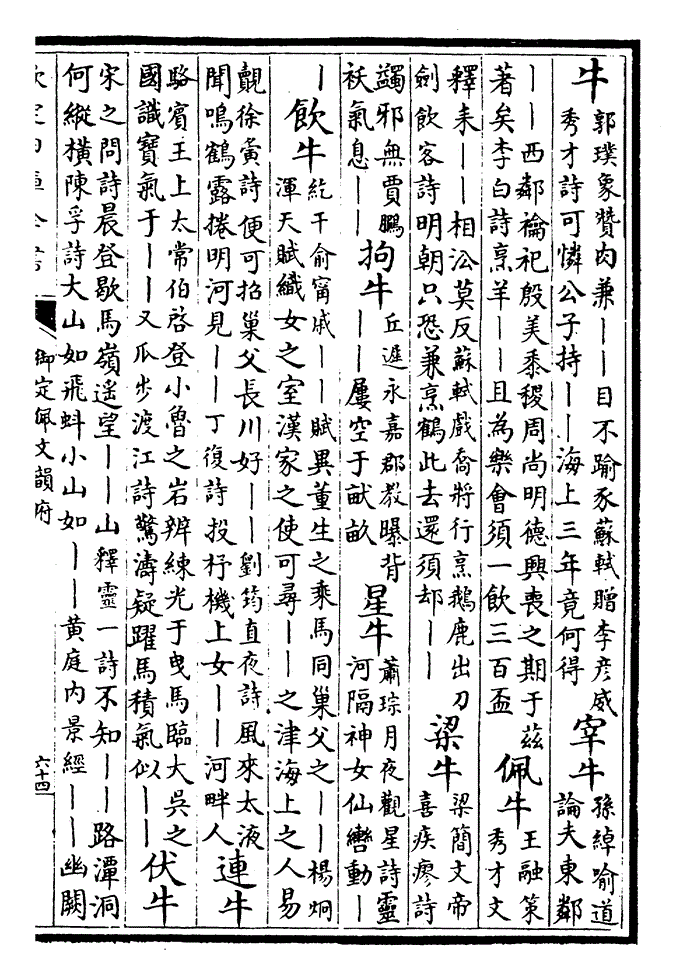 牛 郭璞象贊肉兼——目不踰豕蘇軾贈李彦威秀才詩可憐公子持——海上三年竟何得 宰牛 孫綽喻道論夫東鄰
——西鄰禴祀殷美黍稷周尚明德興喪之期于茲著矣李白詩烹羊——且為樂會須一飲三百盃 佩牛 王融策秀才文
釋耒——相㳂莫反蘇軾戲喬將行烹鵝鹿出刀劍飲客詩明朝只恐兼烹鶴此去還須却—— 梁牛 梁簡文帝喜疾瘳詩
蠲邪無賈鵬袄氣息—— 拘牛 丘遲永嘉郡教曝背——屢空于畎畝 星牛 蕭琮月夜觀星詩靈河隔神女仙轡動—
— 飲牛 紇干俞甯戚——賦異董生之乘馬同巢父之——楊炯渾天賦織女之室漢家之使可尋——之津海上之人易
覿徐黄詩便可招巢父長川好——劉筠直夜詩風來太液聞鳴鶴露捲明河見——丁復詩投杼機上女——河畔人 連牛
駱賓王上太常伯啓登小魯之岩辨練光于曳馬臨大吳之國識寶氣于——又瓜步渡江詩驚濤疑躍馬積氣似—— 伏牛
宋之問詩晨登歇馬嶺遥望——山釋靈一詩不知——路潭洞何縱橫陳孚詩大山如飛蚪小山如——黄庭内景經——幽闕
欽定四庫全書
御定佩文韻府
六十四